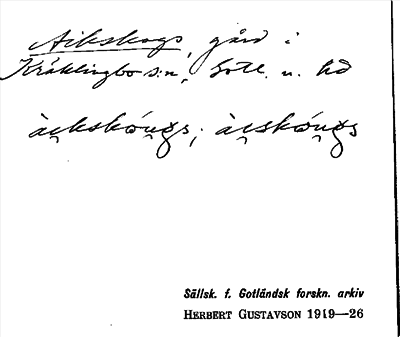 Aikskogs, gård i
Kräklingbo s:n, Gotl. n. hd
àe̯kskóu̯gs; àe̯skóu̯gs
Sällsk. f. Gotländsk forskn. arkiv
HERBERT GUSTAVSON 1919—26